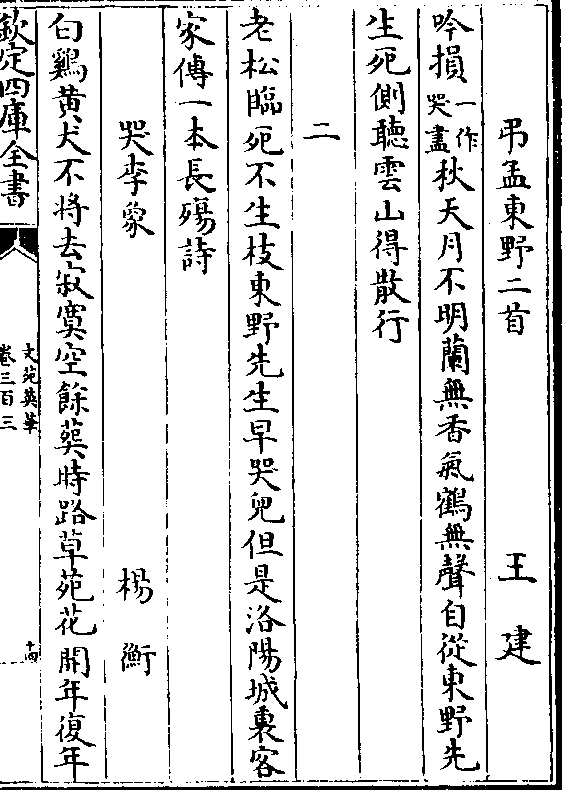 弔孟東野二首 王建
吟損一作哭盡秋天月不明蘭無香氣鶴無聲自從東野先
生死側聽雲山得散行
二
老松臨死不生枝東野先生早哭兒但是洛陽城裏客
家傳一本長殤詩
哭李象 楊衡
白鷄黃犬不將去寂寞空餘葬時路草苑花開年復年
欽定四庫全書
文苑英華
卷三百三
十四